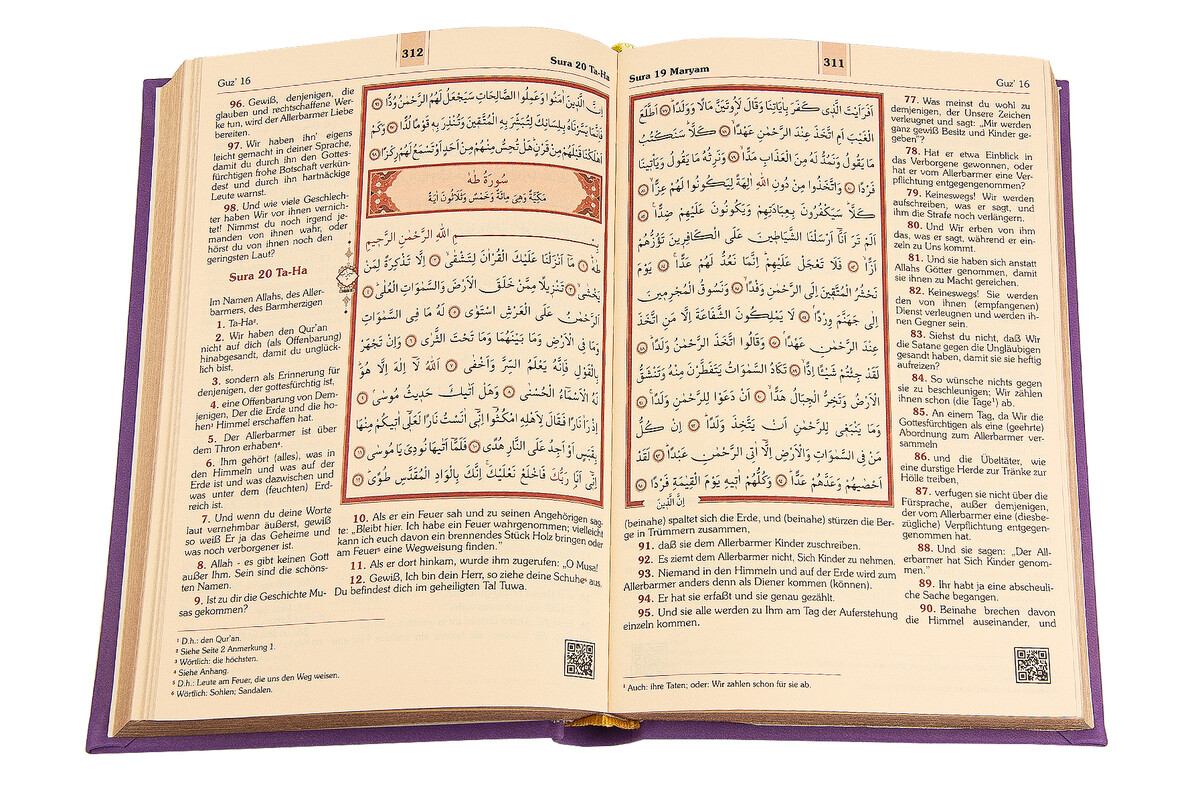 Sura 19 Maryam
311
Guz' 16
اَفَرَاَيْتَ الَّذ۪ي كَفَرَ بِاٰيَاتِنَا وَقَالَ لَاُو۫تَيَنَّ مَالًا وَوَلَدًاۜ ﴿٧٧﴾ اَطَّلَعَ
الْغَيْبَ اَمِ اتَّخَذَ عِنْدَ الرَّحْمٰنِ عَهْدًاۙ ﴿٧٨﴾ كَلَّاۜ سَنَكْتُبُ
مَا يَقُولُ وَنَمُدُّ لَهُ مِنَ الْعَذَابِ مَدًّاۙ ﴿٧٩﴾ وَنَرِثُهُ مَا يَقُولُ وَيَأْت۪ينَا
فَرْدًا ﴿٨٠﴾ وَاتَّخَذُوا مِنْ دُونِ اللّٰهِ اٰلِهَةً لِيَكُونُوا لَهُمْ عِزًّاۙ ﴿٨١﴾
كَلَّاۜ سَيَكْفُرُونَ بِعِبَادَتِهِمْ وَيَكُونُونَ عَلَيْهِمْ ضِدًّا۟ ﴿٨٢﴾
اَلَمْ تَرَ اَنَّٓا اَرْسَلْنَا الشَّيَاط۪ينَ عَلَى الْكَافِر۪ينَ تَؤُزُّهُمْ
اَزًّاۙ ﴿٨٣﴾ فَلَا تَعْجَلْ عَلَيْهِمْۜ اِنَّمَا نَعُدُّ لَهُمْ عَدًّاۚ ﴿٨٤﴾ يَوْمَ
نَحْشُرُ الْمُتَّق۪ينَ اِلَى الرَّحْمٰنِ وَفْدًاۙ ﴿٨٥﴾ وَنَسُوقُ الْمُجْرِم۪ينَ
اِلٰى جَهَنَّمَ وِرْدًاۢ ﴿٨٦﴾ لَا يَمْلِكُونَ الشَّفَاعَةَ اِلَّا مَنِ اتَّخَذَ
عِنْدَ الرَّحْمٰنِ عَهْدًاۢ ﴿٨٧﴾ وَقَالُوا اتَّخَذَ الرَّحْمٰنُ وَلَدًاۜ ﴿٨٨﴾
لَقَدْ جِئْتُمْ شَيْـًٔا اِدًّاۙ ﴿٨٩﴾ تَكَادُ السَّمٰوَاتُ يَتَفَطَّرْنَ مِنْهُ وَتَنْشَقُّ
الْاَرْضُ وَتَخِرُّ الْجِبَالُ هَدًّاۙ ﴿٩٠﴾ اَنْ دَعَوْا لِلرَّحْمٰنِ وَلَدًاۚ ﴿٩١﴾
وَمَا يَنْبَغ۪ي لِلرَّحْمٰنِ اَنْ يَتَّخِذَ وَلَدًاۜ ﴿٩٢﴾ اِنْ كُلُّ
مَنْ فِي السَّمٰوَاتِ وَالْاَرْضِ اِلَّٓا اٰتِي الرَّحْمٰنِ عَبْدًاۜ ﴿٩٣﴾ لَقَدْ
اَحْصٰيهُمْ وَعَدَّهُمْ عَدًّاۜ ﴿٩٤﴾ وَكُلُّهُمْ اٰت۪يهِ يَوْمَ الْقِيٰمَةِ فَرْدًا ﴿٩٥﴾
اِنَّ الَّذ۪ينَ
77. Was meinst du wohl zu
demjenigen, der Unsere Zeichen
verleugnet und sagt: „Mir werden
ganz gewiß Besitz und Kinder ge-
geben“?
78. Hat er etwa Einblick in
das Verborgene gewonnen, oder
hat er vom Allerbarmer eine Ver-
pflichtung entgegengenommen?
79. Keineswegs! Wir werden
aufschreiben, was er sagt, und
ihm die Strafe noch verlängern.
80. Und Wir erben von ihm
das, was er sagt, während er ein-
zeln zu Uns kommt.
81. Und sie haben sich anstatt
Allahs Götter genommen, damit
sie ihnen zu Macht gereichen.
82. Keineswegs! Sie werden
den von ihnen (empfangenen)
Dienst verleugnen und werden ih-
nen Gegner sein.
83. Siehst du nicht, daß Wir
die Satane gegen die Ungläubigen
gesandt haben, damit sie sie heftig
aufreizen?
84. So wünsche nichts gegen
sie zu beschleunigen; Wir zählen
ihnen schon (die Tage¹) ab.
85. An einem Tag, da Wir die
Gottesfürchtigen als eine (geehrte)
Abordnung zum Allerbarmer ver-
sammeln
86. und die Übeltäter, wie
eine durstige Herde zur Tränke zur
Hölle treiben,
87. verfugen sie nicht über die
Fürsprache, außer demjenigen,
der vom Allerbarmer eine (diesbe-
zügliche) Verpflichtung entgegen-
genommen hat.
88. Und sie sagen: „Der All-
erbarmer hat Sich Kinder genom-
men.“
89. Ihr habt ja eine abscheuli-
che Sache begangen.
90. Beinahe brechen davon
die Himmel auseinander, und
(beinahe) spaltet sich die Erde, und (beinahe) stürzen die Ber-
ge in Trümmern zusammen,
91. daß sie dem Allerbarmer Kinder zuschreiben.
92. Es ziemt dem Allerbarmer nicht, Sich Kinder zu nehmen.
93. Niemand in den Himmeln und auf der Erde wird zum
Allerbarmer anders denn als Diener kommen (können).
94. Er hat sie erfaßt und sie genau gezählt.
95. Und sie alle werden zu Ihm am Tag der Auferstehung
einzeln kommen.
¹ Auch: ihre Taten; oder: Wir zahlen schon für sie ab.
Guz' 16
312
Sura 20 Ta-Ha
اِنَّ الَّذ۪ينَ اٰمَنُوا وَعَمِلُوا الصَّالِحَاتِ سَيَجْعَلُ لَهُمُ الرَّحْمٰنُ وُدًّا ﴿٩٦﴾
فَاِنَّمَا يَسَّرْنَاهُ بِلِسَانِكَ لِتُبَشِّرَ بِهِ الْمُتَّق۪ينَ وَتُنْذِرَ بِه۪ قَوْمًا لُدًّا ﴿٩٧﴾ وَكَمْ
اَهْلَكْنَا قَبْلَهُمْ مِنْ قَرْنٍۜ هَلْ تُحِسُّ مِنْهُمْ مِنْ اَحَدٍ اَوْ تَسْمَعُ لَهُمْ رِكْزًا ﴿٩٨﴾
سُورَةُ طٰهٰ
مَكِّيَّةٌ وَهِيَ مِائَةٌ وَخَمْسٌ وَثَلَاثُونَ اٰيَةً
بِسْمِ اللّٰهِ الرَّحْمٰنِ الرَّح۪يمِ
طٰهٰۜ ﴿١﴾ مَٓا اَنْزَلْنَا عَلَيْكَ الْقُرْاٰنَ لِتَشْقٰىۙ ﴿٢﴾ اِلَّا تَذْكِرَةً لِمَنْ
يَخْشٰىۙ ﴿٣﴾ تَنْز۪يلًا مِمَّنْ خَلَقَ الْاَرْضَ وَالسَّمٰوَاتِ الْعُلٰىۜ ﴿٤﴾
اَلرَّحْمٰنُ عَلَى الْعَرْشِ اسْتَوٰى ﴿٥﴾ لَهُ مَا فِي السَّمٰوَاتِ
وَمَا فِي الْاَرْضِ وَمَا بَيْنَهُمَا وَمَا تَحْتَ الثَّرٰى ﴿٦﴾ وَاِنْ تَجْهَرْ
بِالْقَوْلِ فَاِنَّهُ يَعْلَمُ السِّرَّ وَاَخْفٰى ﴿٧﴾ اَللّٰهُ لَٓا اِلٰهَ اِلَّا هُوَۜ
لَهُ الْاَسْمَٓاءُ الْحُسْنٰى ﴿٨﴾ وَهَلْ اَتٰيكَ حَد۪يثُ مُوسٰىۢ ﴿٩﴾
اِذْ رَاٰ نَارًا فَقَالَ لِاَهْلِهِ امْكُثُٓوا اِنّ۪ٓي اٰنَسْتُ نَارًا لَعَلّ۪ٓي اٰت۪يكُمْ مِنْهَا
بِقَبَسٍ اَوْ اَجِدُ عَلَى النَّارِ هُدًى ﴿١٠﴾ فَلَمَّٓا اَتٰيهَا نُودِيَ يَا مُوسٰىۜ ﴿١١﴾
اِنّ۪ٓي اَنَا۬ رَبُّكَ فَاخْلَعْ نَعْلَيْكَۚ اِنَّكَ بِالْوَادِ الْمُقَدَّسِ طُوًىۜ ﴿١٢﴾
96. Gewiß, denjenigen, die
glauben und rechtschaffene Wer-
ke tun, wird der Allerbarmer Liebe
bereiten.
97. Wir haben ihn' eigens
leicht gemacht in deiner Sprache,
damit du durch ihn den Gottes-
fürchtigen frohe Botschaft verkün-
dest und durch ihn hartnäckige
Leute warnst.
98. Und wie viele Geschlech-
ter haben Wir vor ihnen vernich-
tet! Nimmst du noch irgend je-
manden von ihnen wahr, oder
hörst du von ihnen noch den
geringsten Laut?
Sura 20 Ta-Ha
Im Namen Allahs, des Aller-
barmers, des Barmherzigen
1. Ta-Ha².
2. Wir haben den Qur'an
nicht auf dich (als Offenbarung)
hinabgesandt, damit du unglück-
lich bist,
3. sondern als Erinnerung für
denjenigen, der gottesfürchtig ist,
4. eine Offenbarung von Dem-
jenigen, Der die Erde und die ho-
hen³ Himmel erschaffen hat.
5. Der Allerbarmer ist über
dem Thron erhaben⁴.
6. Ihm gehört (alles), was in
den Himmeln und was auf der
Erde ist und was dazwischen und
was unter dem (feuchten) Erd-
reich ist.
7. Und wenn du deine Worte
laut vernehmbar äußerst, gewiß
so weiß Er ja das Geheime und
was noch verborgener ist.
8. Allah - es gibt keinen Gott
außer Ihm. Sein sind die schöns-
ten Namen.
9. Ist zu dir die Geschichte Mu-
sas gekommen?
10. Als er ein Feuer sah und zu seinen Angehörigen sag-
te: „Bleibt hier. Ich habe ein Feuer wahrgenommen; vielleicht
kann ich euch davon ein brennendes Stück Holz bringen oder
am Feuer⁵ eine Wegweisung finden.“
11. Als er dort hinkam, wurde ihm zugerufen: „O Musa!
12. Gewiß, Ich bin dein Herr, so ziehe deine Schuhe⁶ aus.
Du befindest dich im geheiligten Tal Tuwa.
¹ D.h.: den Qur'an.
² Siehe Seite 2 Anmerkung 1.
³ Wörtlich: die höchsten.
⁴ Siehe Anhang.
⁵ D.h.: Leute am Feuer, die uns den Weg weisen.
⁶ Wörtlich: Sohlen; Sandalen.